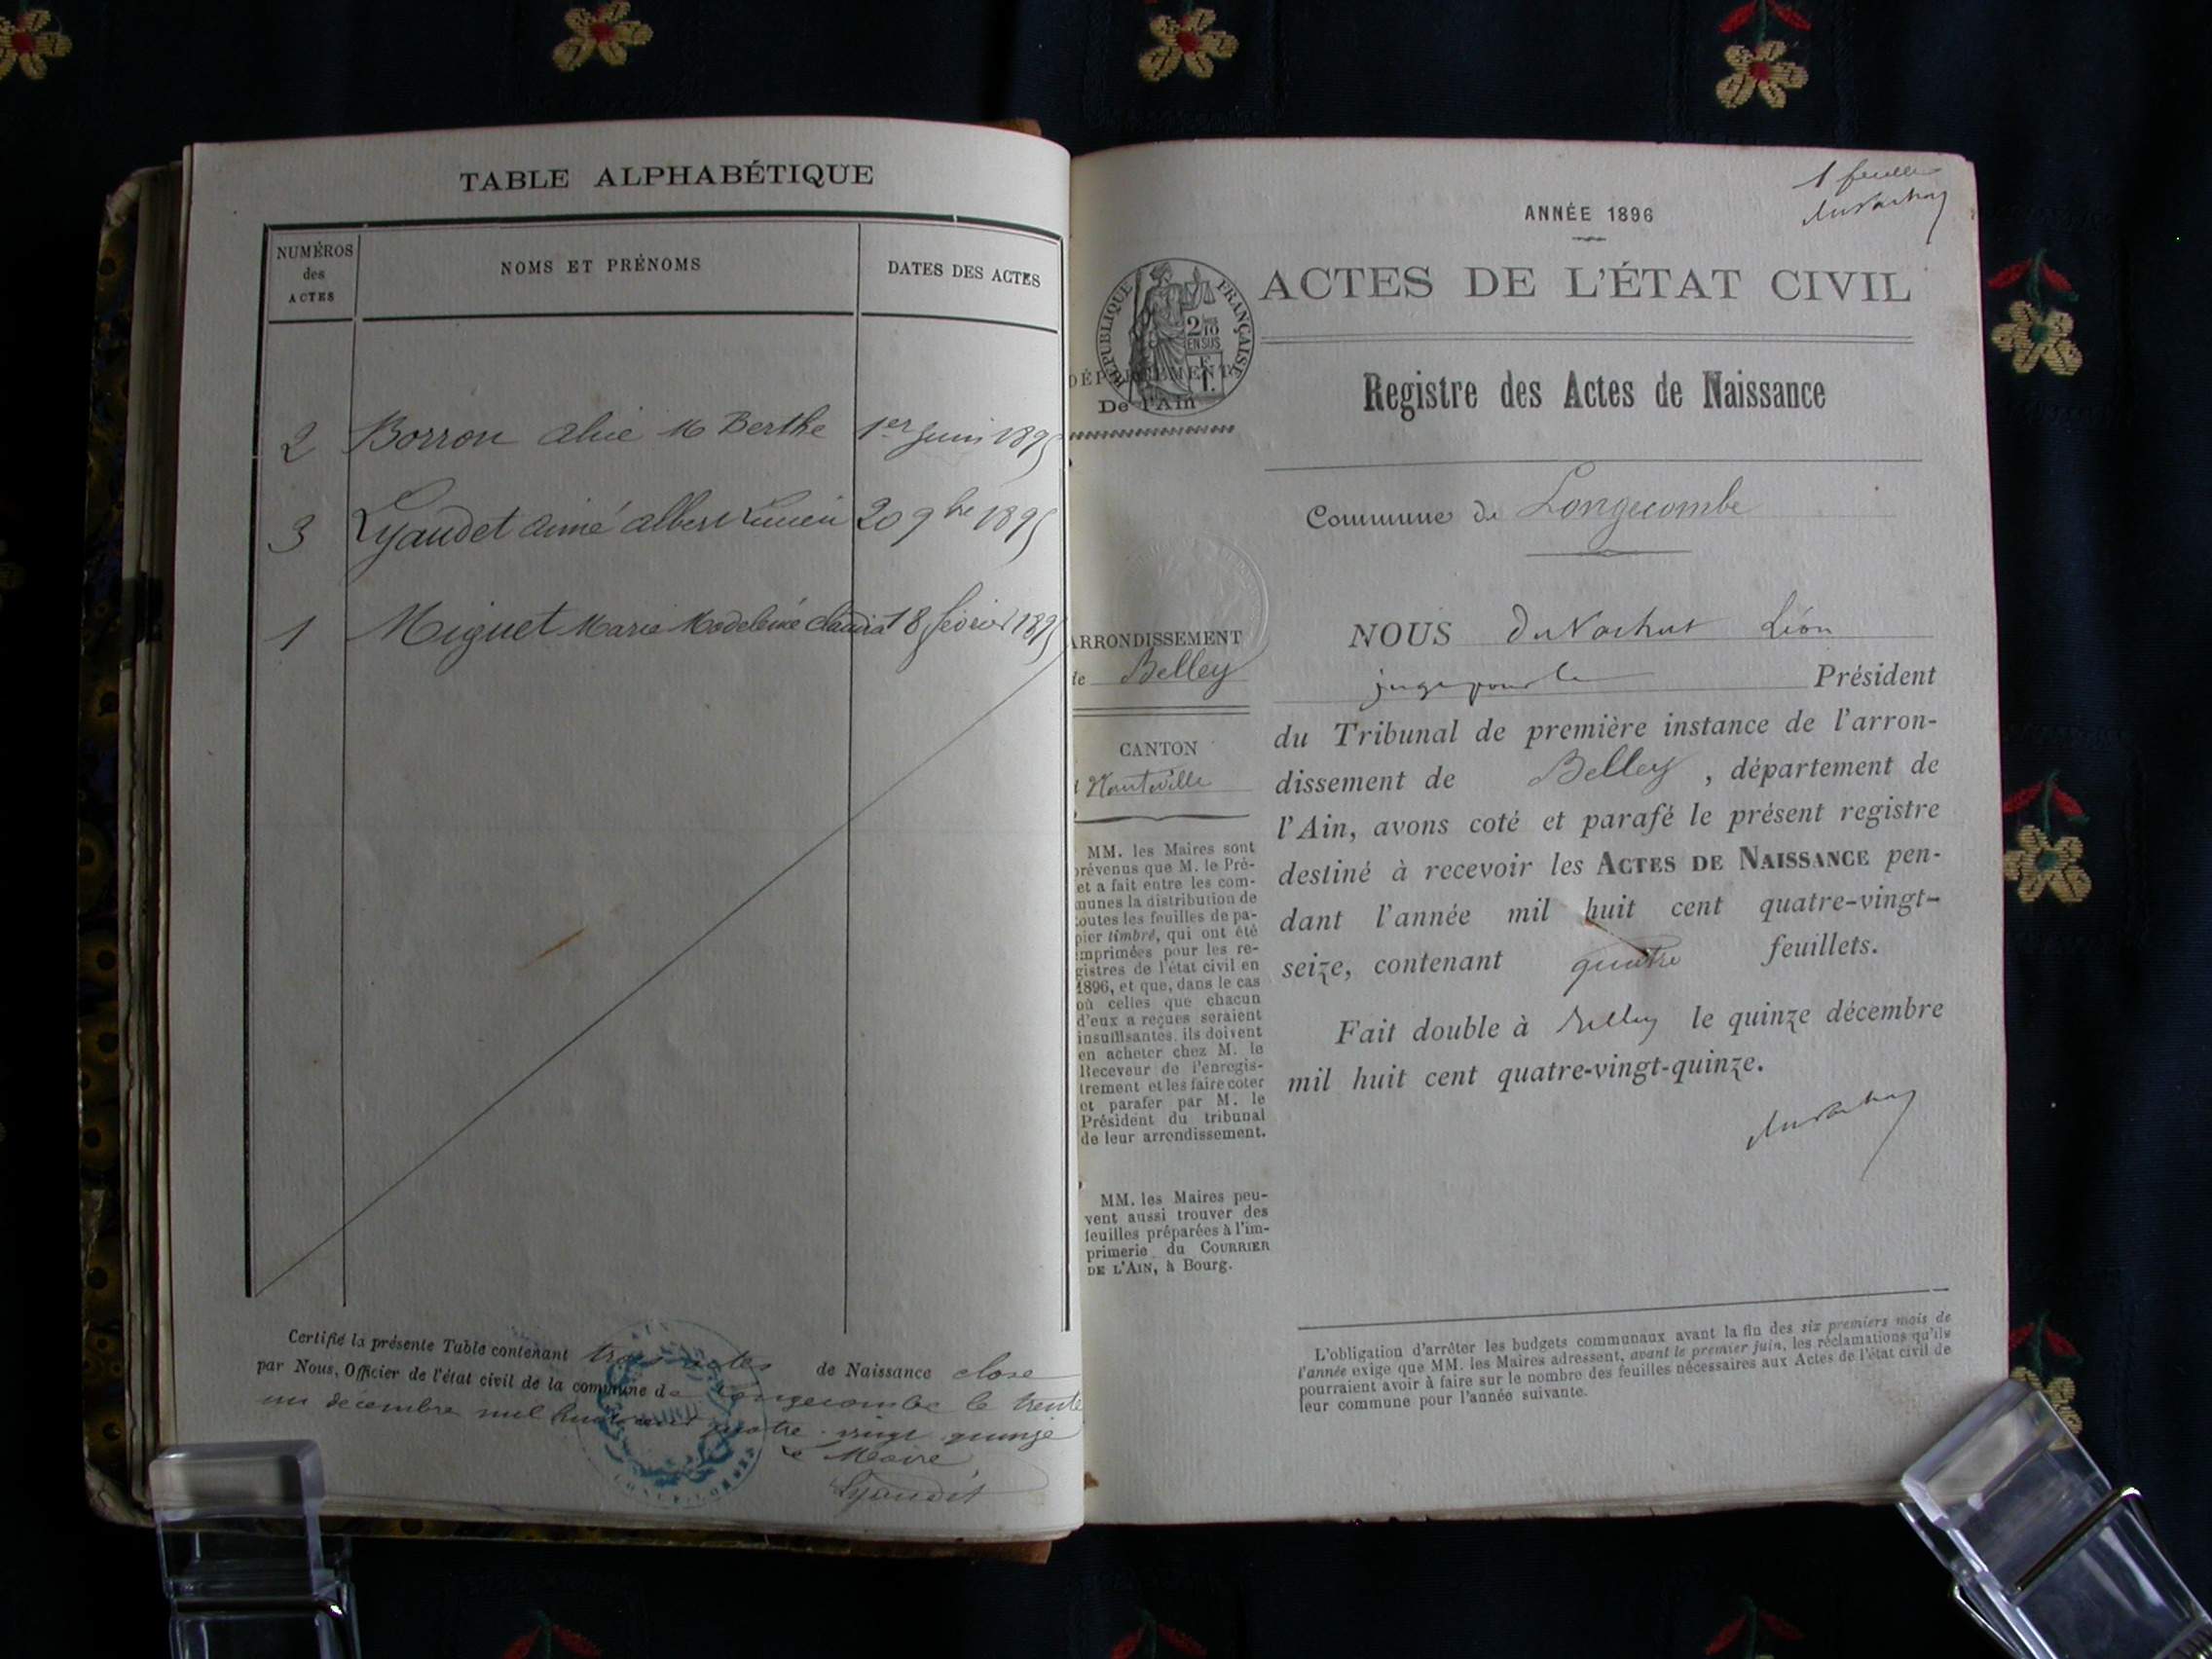 TABLE ALPHABÉTIQUE
NUMÉROS des ACTES
NOMS ET PRÉNOMS
DATES DES ACTES
2 Borron Alice M Berthe 1er Juin 1895
3 Lyaudet Aimé Albert Lucien 20 9bre 1895
1 Miguet Marie Madeleine Claudia 18 février 1895
Certifié la présente Table contenant trois actes de Naissance close
par Nous, Officier de l'état civil de la commune de Longecombe le trente
un décembre mil huit cent quatre-vingt quinze
Le Maire,
Lyaudet
1 feuille
ANNÉE 1896
ACTES DE L'ÉTAT CIVIL
RÉPUBLIQUE FRANÇAISE
2/10 EN SUS
DÉPARTEMENT
De l'Ain
Registre des Actes de Naissance
Commune de Longecombe
ARRONDISSEMENT
de Belley
CANTON
d'Hauteville
MM. les Maires sont
prévenus que M. le Pré-
et a fait entre les com-
munes la distribution de
toutes les feuilles de pa-
pier timbré, qui ont été
imprimées pour les re-
gistres de l'état civil en
1896, et que, dans le cas
où celles que chacun
d'eux a reçues seraient
insuffisantes, ils doivent
en acheter chez M. le
Receveur de l'enregis-
trement et les faire coter
et parafer par M. le
Président du tribunal
de leur arrondissement.
MM. les Maires peu-
vent aussi trouver des
feuilles préparées à l'im-
primerie du COURRIER
DE L'AIN, à Bourg.
NOUS DuVachat Léon
juge pour le Président
du Tribunal de première instance de l'arron-
dissement de Belley, département de
l'Ain, avons coté et parafé le présent registre
destiné à recevoir les ACTES DE NAISSANCE pen-
dant l'année mil huit cent quatre-vingt-
seize, contenant quatre feuillets.
Fait double à Belley le quinze décembre
mil huit cent quatre-vingt-quinze.
L'obligation d'arrêter les budgets communaux avant la fin des six premiers mois de
l'année exige que MM. les Maires adressent, avant le premier juin, les réclamations qu'ils
pourraient avoir à faire sur le nombre des feuilles nécessaires aux Actes de l'état civil de
leur commune pour l'année suivante.